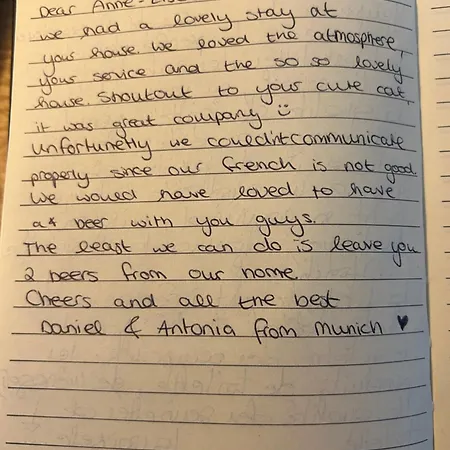 Dear Anne-
we had a lovely stay at
your house. We loved the atmosphere,
your service and the so so lovely
house. Shoutout to your cute cat,
it was great company :)
Unfortunetly we couldn't communicate
properly since our french is not good.
We would have loved to have
a beer with you guys.
The least we can do is leave you
2 beers from our home.
Cheers and all the best
Daniel & Antonia from Munich ♥